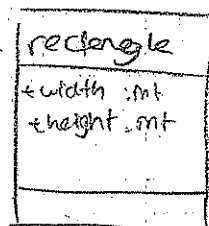 rectengle
+width :int
+height :int